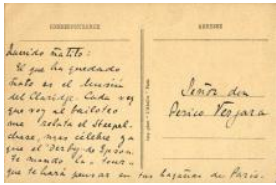 CORRESPONDANCE
ADRESSE
Querido Matito:
Sé que ha quedado
roto es el
del Claridge. Cada vez
que voy al bailoteo
me relata el Steepel-
chase, mas célebre ya
que el "Derby" de Epson.
Te mando la "tour"
que te hará pensar en tus hazañas de Paris.
Señor don
Perico Vergara